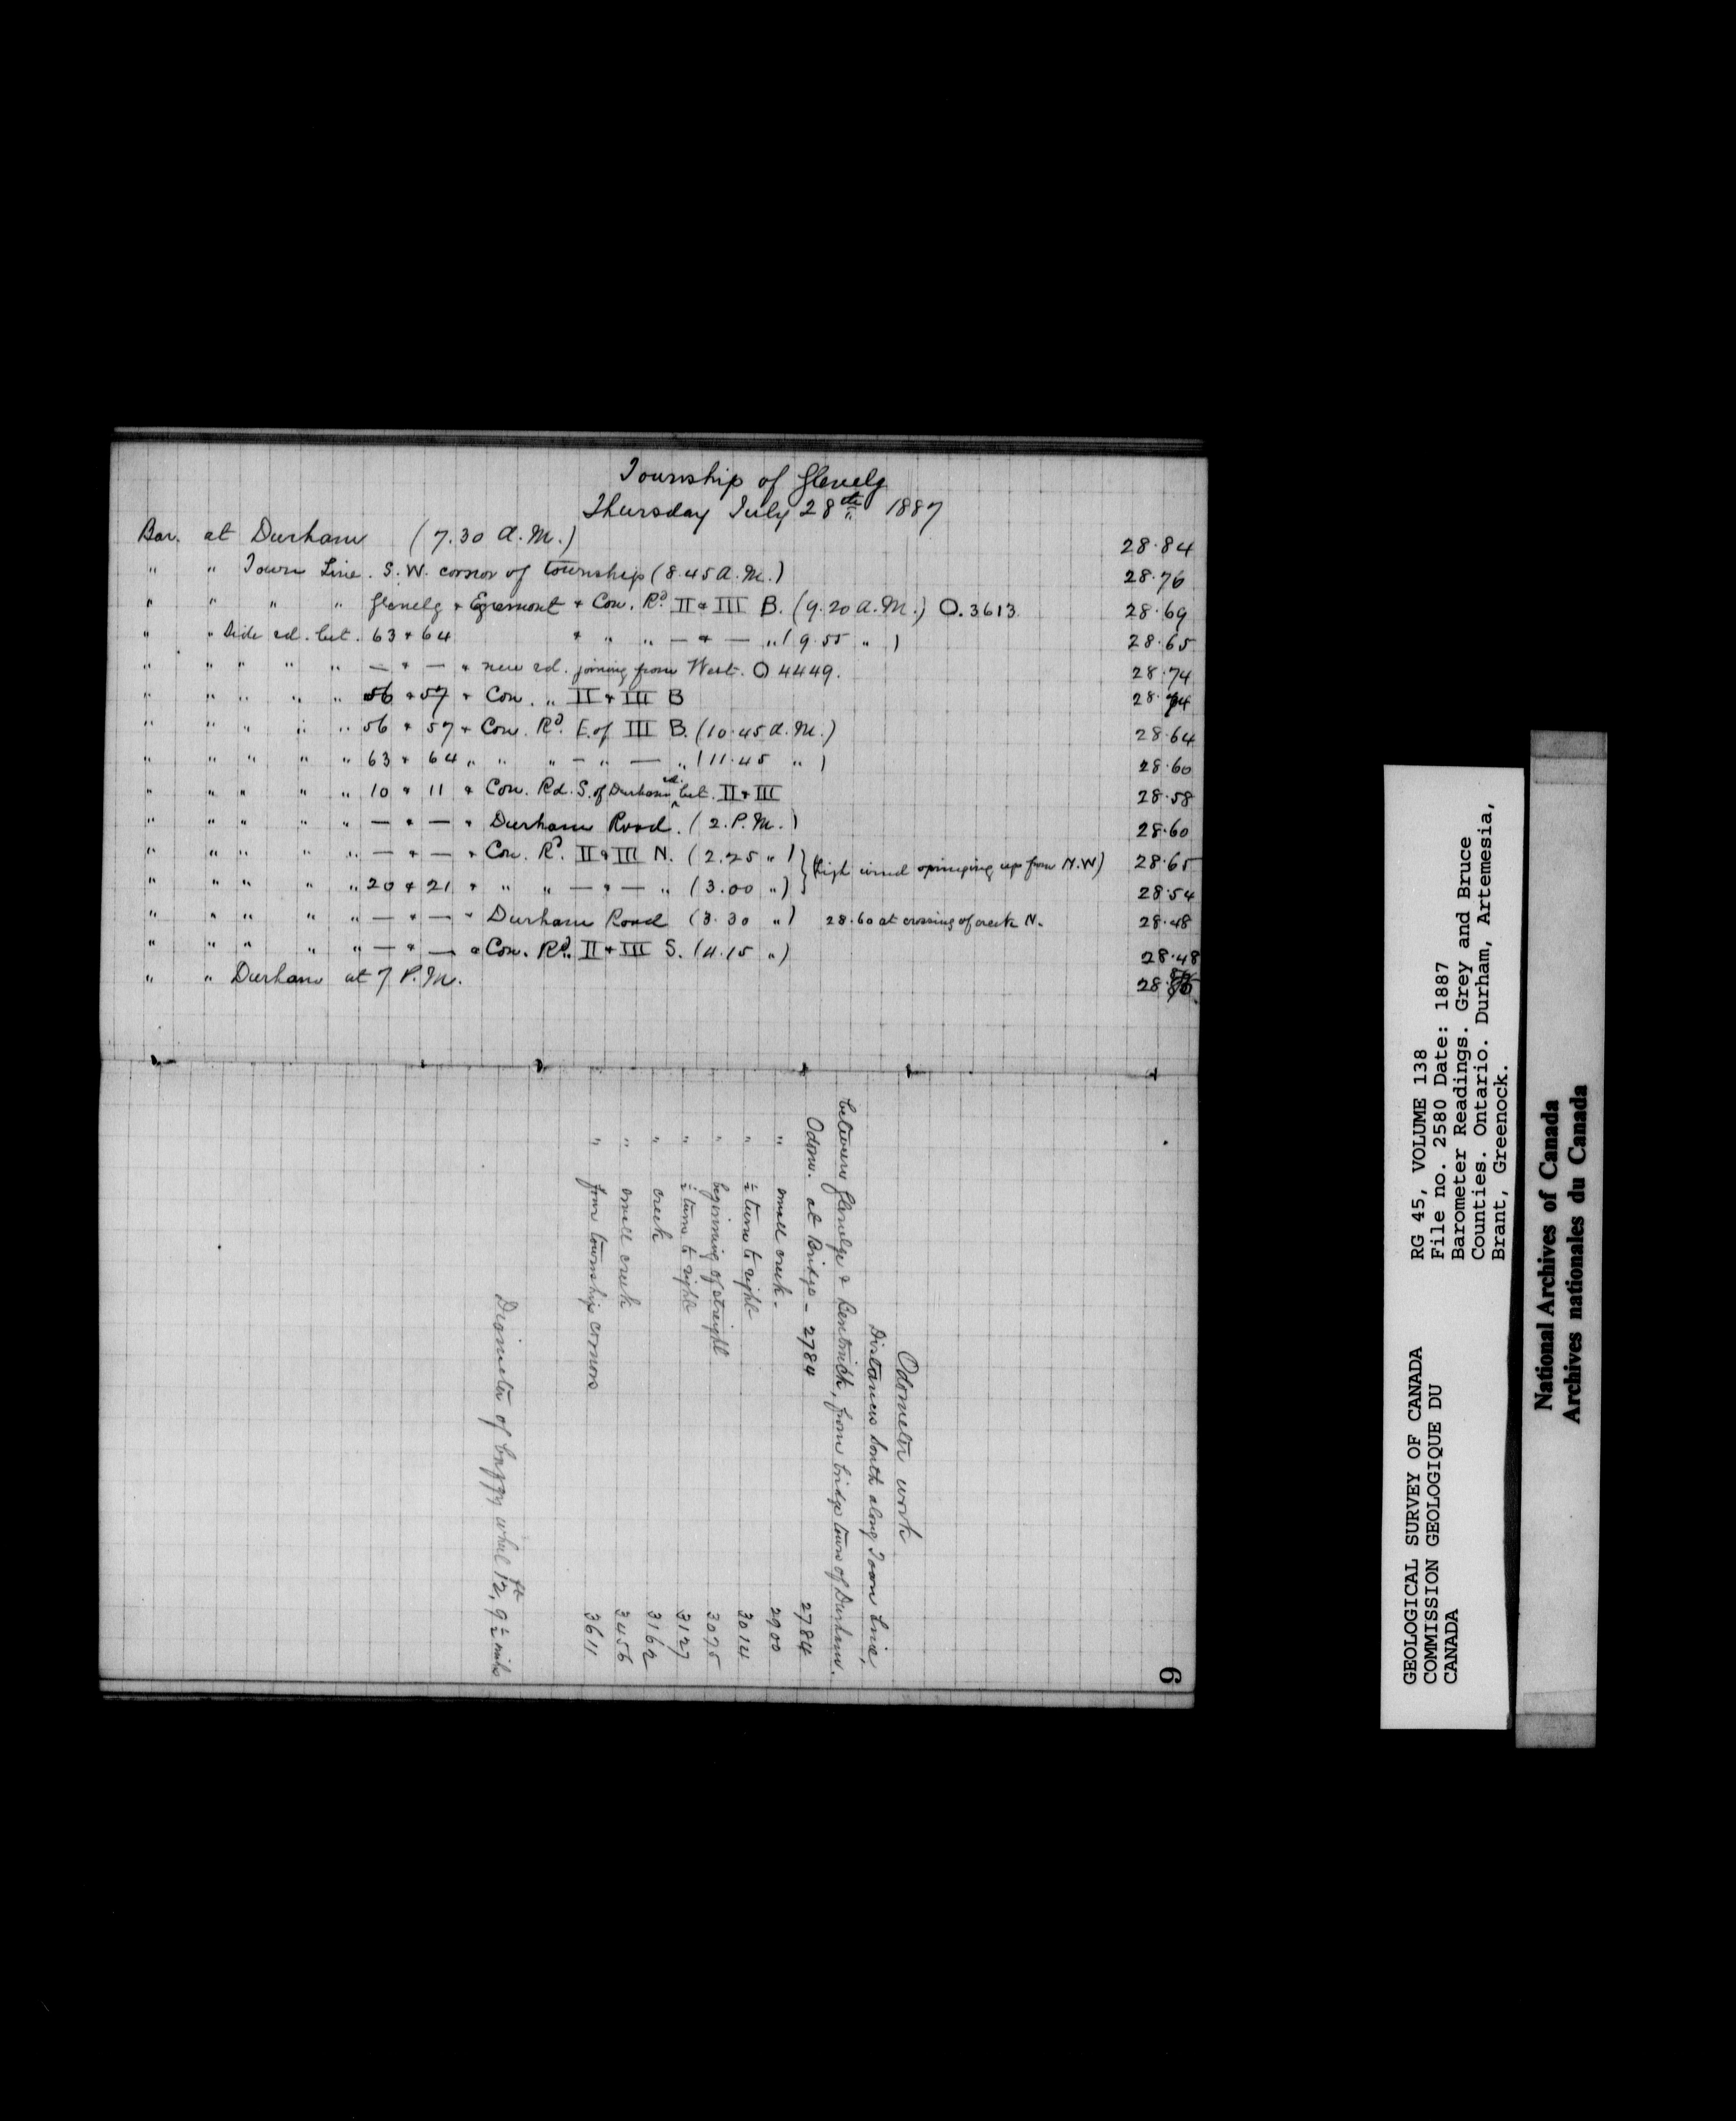 Township of Glenelg
Thursday July 28th 1887
Bar. at Durham (7.30 A.M.) 28.84
" " Town Line. S.W. corner of township (8.45 A.M.) 28.76
" " " " Glenelg & Egremont & Con. Rd II & III B. (9.20 A.M.) O.3613 28.69
" " Side rd. bet. 63 & 64 & " " — & — " (9.55 ") 28.65
" " " " " — & — & new rd. joining from West. O 4449. 28.74
" " " " " 56 & 57 & Con. " II & III B 28.74
" " " " " 56 & 57 & Con. Rd. E. of III B. (10.45 A.M.) 28.64
" " " " " 63 & 64 " " " — " — " (11.45 ") 28.60
" " " " " 10 & 11 & Con. Rd. S. of Durham rd. bet. II & III 28.58
" " " " " — & — & Durham Road. (2. P.M.) 28.60
" " " " " — & — & Con. Rd. II & III N. (2.25 ") 28.65
" " " " " 20 & 21 & " " — & — " (3.00 ") (High wind springing up from N.W) 28.54
" " " " " — & — & Durham Road (3.30 ") 28.60 at crossing of creek N. 28.48
" " " " " — & — & Con. Rd. II & III S. (4.15 ") 28.48
" " Durham at 7 P.M. 28.
Odometer work
Distances South along Town Line,
between Glenelg & Bentinck, from bridge town of Durham.
Odom. at Bridge – 2784 2784
" small creek. 2900
" ½ turn to right 3014
" beginning of streight 3075
" ½ turn to right 3127
" creek 3162
" small creek 3456
" four township corners 3611
Diameter of buggy wheel 12 ft, 9½
6
GEOLOGICAL SURVEY OF CANADA
COMMISSION GEOLOGIQUE DU
CANADA
RG 45, VOLUME 138
File no. 2580 Date: 1887
Barometer Readings. Grey and Bruce
Counties. Ontario. Durham, Artemesia,
Brant, Greenock.
National Archives of Canada
Archives nationales du Canada